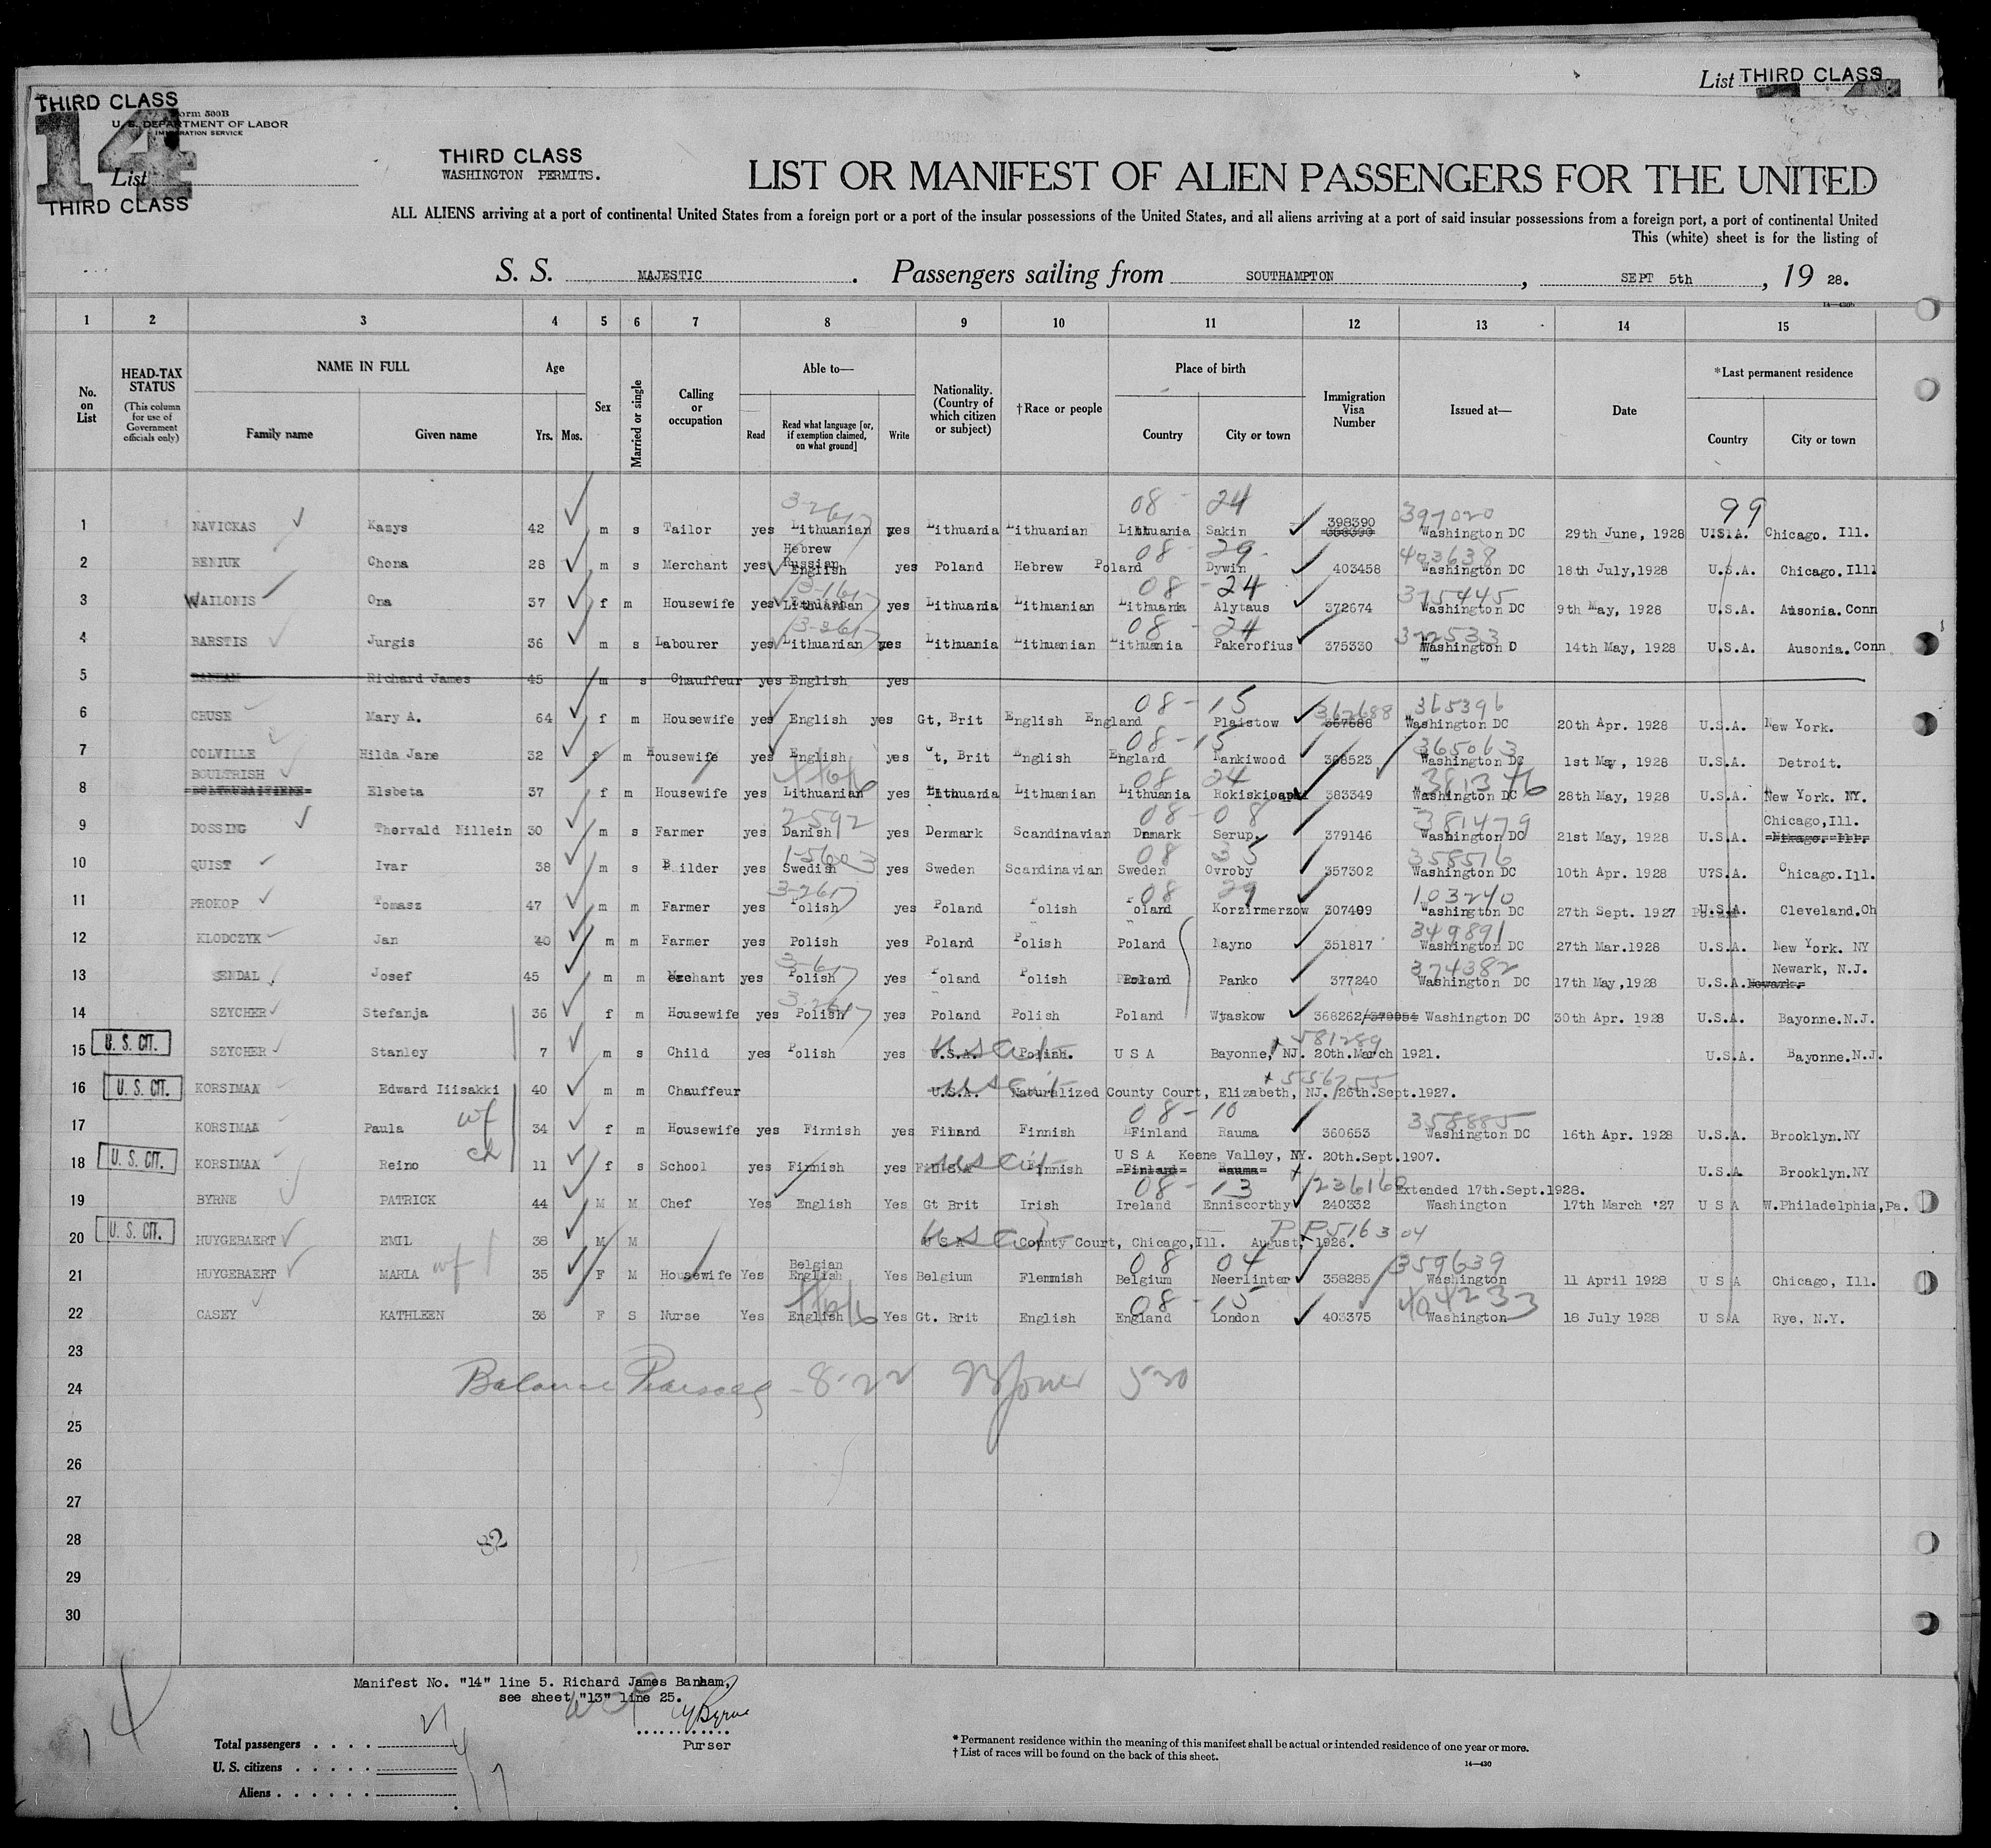 List THIRD CLASS
THIRD CLASS
14
Form 500B
U. S. DEPARTMENT OF LABOR
IMMIGRATION SERVICE
List
THIRD CLASS
THIRD CLASS
WASHINGTON PERMITS.
LIST OR MANIFEST OF ALIEN PASSENGERS FOR THE UNITED
ALL ALIENS arriving at a port of continental United States from a foreign port or a port of the insular possessions of the United States, and all aliens arriving at a port of said insular possessions from a foreign port, a port of continental United
This (white) sheet is for the listing of
S. S. MAJESTIC. Passengers sailing from SOUTHAMPTON, SEPT 5th, 19 28.
1 2 3 4 5 6 7 8 9 10 11 12 13 14 15
No. on List
HEAD-TAX STATUS (This column for use of Government officials only)
NAME IN FULL Family name Given name
Age Yrs. Mos.
Sex
Married or single
Calling or occupation
Able to— Read Read what language [or, if exemption claimed, on what ground] Write
Nationality. (Country of which citizen or subject)
† Race or people
Place of birth Country City or town
Immigration Visa Number
Issued at—
Date
* Last permanent residence Country City or town
3-2617 08 - 24 398390 397020 99
1 NAVICKAS Kazys 42 m s Tailor yes Lithuanian yes Lithuania Lithuanian Lithuania Sakin Washington DC 29th June, 1928 U.S.A. Chicago. Ill.
Hebrew 08 - 29 403638
2 BENIUK Chona 28 m s Merchant yes Russian English yes Poland Hebrew Poland Dywin 403458 Washington DC 18th July,1928 U.S.A. Chicago.Ill
08 - 24 375445
3 WAILONIS Ona 37 f m Housewife yes Lithuanian yes Lithuania Lithuanian Lithuania Alytaus 372674 Washington DC 9th May, 1928 U.S.A. Ausonia.Conn
3-2617 08 - 24 372533
4 BARSTIS Jurgis 36 m s Labourer yes Lithuanian yes Lithuania Lithuanian Lithuania Pakerofius 375330 Washington D 14th May, 1928 U.S.A. Ausonia.Conn
5 BANHAM Richard James 45 m s Chauffeur yes English yes
08 - 15 362688 365396
6 CRUSE Mary A. 64 f m Housewife yes English yes Gt, Brit English England Plaistow Washington DC 20th Apr. 1928 U.S.A. New York.
08 - 15 365063
7 COLVILLE Hilda Jane 32 f m Housewife yes English yes Gt, Brit English England Bankiwood 368523 Washington DC 1st May, 1928 U.S.A. Detroit.
BOULTRISH 08 24 381376
8 Elsbeta 37 f m Housewife yes Lithuanian yes Lithuania Lithuanian Lithuania Rokiskio 383349 Washington DC 28th May, 1928 U.S.A. New York. NY.
2592 08 - 08 381479 Chicago,Ill.
9 DOSSING Thorvald Nillein 30 m s Farmer yes Danish yes Denmark Scandinavian Denmark Serup. 379146 Washington DC 21st May, 1928 U.S.A.
08 35 358516
10 QUIST Ivar 38 m s Builder yes Swedish yes Sweden Scandinavian Sweden Ovroby 357302 Washington DC 10th Apr. 1928 U?S.A. Chicago.Ill.
3-2617 08 29 103240
11 PROKOP Tomasz 47 m m Farmer yes Polish yes Poland Polish Poland Korzirmerzow 307409 Washington DC 27th Sept. 1927 U.S.A. Cleveland.Oh
349891
12 KLODCZYK Jan 40 m m Farmer yes Polish yes Poland Polish Poland Nayno 351817 Washington DC 27th Mar.1928 U.S.A. New York. NY
374382 Newark, N.J.
13 SENDAL Josef 45 m m Mechant yes Polish yes Poland Polish Poland Panko 377240 Washington DC 17th May,1928 U.S.A. Newark.
3-2617
14 SZYCHER Stefanja 36 f m Housewife yes Polish yes Poland Polish Poland Wyaskow 368262/379954 Washington DC 30th Apr. 1928 U.S.A. Bayonne.N.J.
581289
15 U. S. CIT. SZYCHER Stanley 7 m s Child yes Polish yes U.S.A. us cit Polish. U S A Bayonne, NJ. 20th.March 1921. U.S.A. Bayonne.N.J.
556255
16 U. S. CIT. KORSIMAA Edward Iiisakki 40 m m Chauffeur U.S.A. us cit Naturalized County Court, Elizabeth, NJ. 26th.Sept.1927.
wf 08 - 10 358885
17 KORSIMAA Paula 34 f m Housewife yes Finnish yes Finland Finnish Finland Rauma 360653 Washington DC 16th Apr. 1928 U.S.A. Brooklyn.NY
ch U S A Keene Valley, NY. 20th.Sept.1907.
18 U. S. CIT. KORSIMAA Reino 11 f s School yes Finnish yes us cit Finnish Finland Rauma U.S.A Brooklyn.NY
08 - 13 236160 Extended 17th.Sept.1928.
19 BYRNE PATRICK 44 M M Chef Yes English Yes Gt Brit Irish Ireland Enniscorthy 240332 Washington 17th March '27 U S A W.Philadelphia,Pa.
PP 516304
20 U. S. CIT. HUYGEBAERT EMIL 38 M M U S A us cit County Court, Chicago,Ill. August, 1926.
wf Belgian 08 04 359639
21 HUYGEBAERT MARIA 35 F M Housewife Yes English Yes Belgium Flemmish Belgium Neerlinter 358285 Washington 11 April 1928 U S A Chicago, Ill.
08 - 15 404233
22 CASEY KATHLEEN 36 F S Nurse Yes English Yes Gt. Brit English England London 403375 Washington 18 July 1928 U S A Rye, N.Y.
23
24 Balance 8-22 530
25
26
27
28
29
30
Manifest No. "14" line 5. Richard James Banham,
see sheet "13" line 25.
Byrne
Purser
14
Total passengers . . . . 21
U. S. citizens . . . . . 4
Aliens . . . . . . 17
* Permanent residence within the meaning of this manifest shall be actual or intended residence of one year or more.
† List of races will be found on the back of this sheet.
14—430